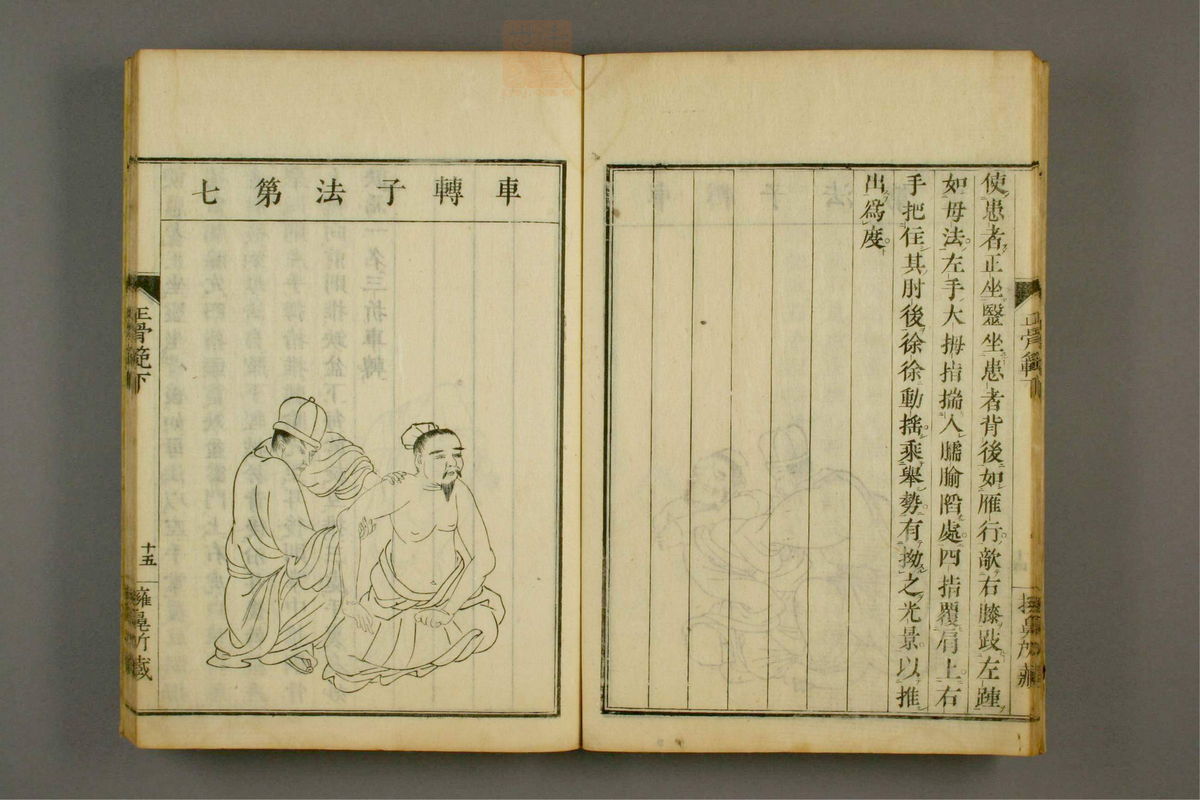 使患者正坐毉坐患者背後如雁行敧右膝跂左踵
如母法左手大拇指揣入臑腧陷處四指覆肩上右
手把住其肘後徐徐動搖乘舉勢有拗之光景以推
出爲度
正骨範下
車轉子法第七
正骨範下
十五